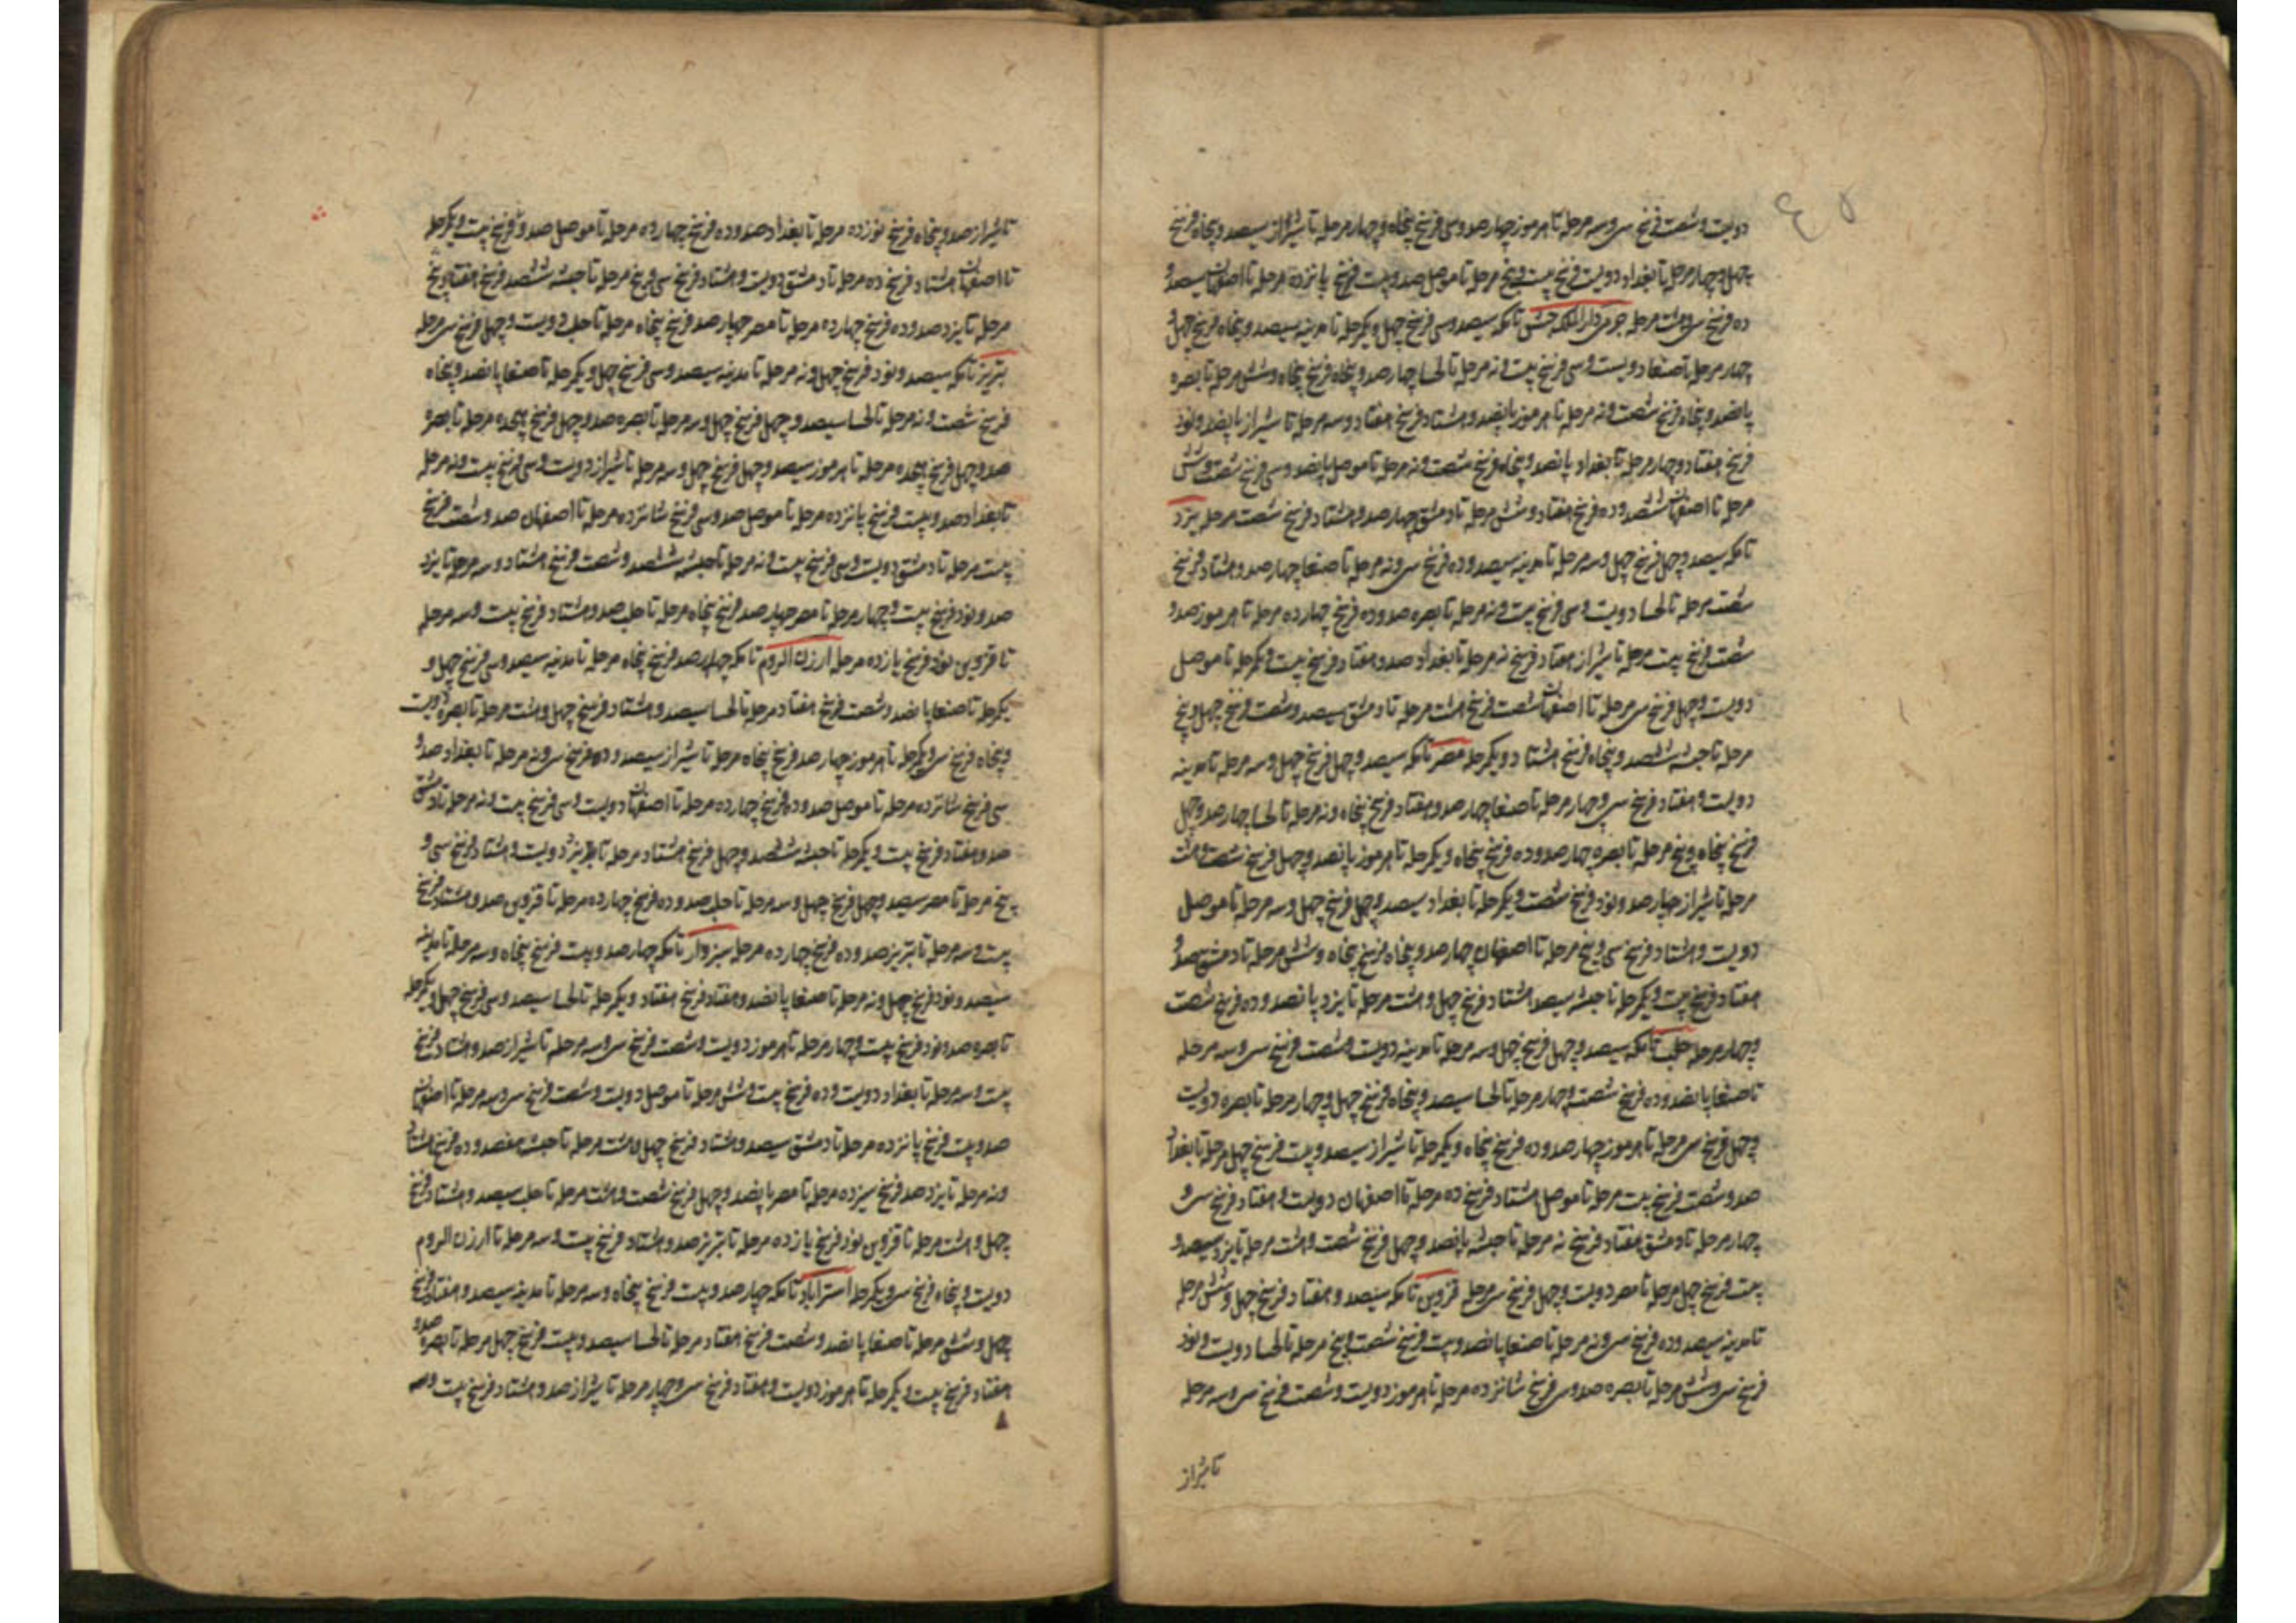 دویست و شصت فرسخ سی و سه مرحله تا هرموز چهار صد و سی فرسخ پنجاه و چهار مرحله تا شیراز سیصد و پنجاه فرسخ
چهل و چهار مرحله تا بغداد دویست فرسخ بیست و پنج مرحله تا موصل صد و بیست فرسخ پانزده مرحله تا اصفهان سیصد و
ده فرسخ سی و هشت مرحله دار الملک حبش تا مکه سیصد و سی فرسخ چهل و یکرحله تا مدینه سیصد و پنجاه فرسخ چهل و
چهار مرحله تا صنعا دویست و سی فرسخ بیست و نه مرحله تا لحسا چهار صد و پنجاه فرسخ پنجاه و شش مرحله تا بصره
پانصد و پنجاه فرسخ شصت و نه مرحله تا هرموز پانصد و هشتاد فرسخ هفتاد و سه مرحله تا شیراز پانصد و نود
فرسخ هفتاد و چهار مرحله تا بغداد پانصد و پنجاه فرسخ شصت و نه مرحله تا موصل پانصد و سی فرسخ شصت و شش
مرحله تا اصفهان ششصد و ده فرسخ هفتاد و شش مرحله تا دمشق چهار صد و هشتاد فرسخ شصت مرحله یزد
تا مکه سیصد و چهل فرسخ چهل و سه مرحله تا مدینه سیصد و ده فرسخ سی و نه مرحله تا صنعا چهار صد و هشتاد فرسخ
شصت مرحله تا لحسا دویست و سی فرسخ بیست و نه مرحله تا بصره صد و ده فرسخ چهارده مرحله تا هرموز صد و
شصت فرسخ بیست مرحله تا شیراز هفتاد فرسخ نه مرحله تا بغداد صد و هفتاد فرسخ بیست و یکرحله تا موصل
دویست و چهل فرسخ سی مرحله تا اصفهان شصت فرسخ هشت مرحله تا دمشق سیصد و شصت فرسخ چهل و پنج
مرحله تا حبشه ششصد و پنجاه فرسخ هشتاد و یکرحله مصر تا مکه سیصد و چهل فرسخ چهل و سه مرحله تا مدینه
دویست و هفتاد فرسخ سی و چهار مرحله تا صنعا چهار صد و هفتاد فرسخ پنجاه و نه مرحله تا لحسا چهار صد و چهل
فرسخ پنجاه و پنج مرحله تا بصره چهار صد و ده فرسخ پنجاه و یکرحله تا هرموز پانصد و چهل فرسخ شصت و هشت
مرحله تا شیراز چهار صد و نود فرسخ شصت و یکرحله تا بغداد سیصد و چهل فرسخ چهل و سه مرحله تا موصل
دویست و هشتاد فرسخ سی و پنج مرحله تا اصفهان چهار صد و پنجاه فرسخ پنجاه و شش مرحله تا دمشق صد و
هفتاد فرسخ بیست و یکرحله تا حبشه سیصد هشتاد فرسخ چهل و هشت مرحله تا یزد پانصد و ده فرسخ شصت
و چهار مرحله حلب تا مکه سیصد و چهل فرسخ چهل و سه مرحله تا مدینه دویست و شصت فرسخ سی و سه مرحله
تا صنعا پانصد و ده فرسخ شصت و چهار مرحله تا لحسا سیصد و پنجاه فرسخ چهل و چهار مرحله تا بصره دویست
و چهل فرسخ سی مرحله تا هرموز چهار صد و ده فرسخ پنجاه و یکرحله تا شیراز سیصد و بیست فرسخ چهل مرحله تا بغداد
صد و شصت فرسخ بیست مرحله تا موصل هشتاد فرسخ ده مرحله تا اصفهان دویست و هفتاد فرسخ سی و
چهار مرحله تا دمشق هفتاد فرسخ نه مرحله تا حبشه پانصد و چهل فرسخ شصت و هشت مرحله تا یزد سیصد و
بیست فرسخ چهل مرحله تا مصر دویست و چهل فرسخ سی مرحله قزوین تا مکه سیصد و هفتاد فرسخ چهل و شش مرحله
تا مدینه سیصد و ده فرسخ سی و نه مرحله تا صنعا پانصد و بیست فرسخ شصت و پنج مرحله تا لحسا دویست و نود
فرسخ سی و شش مرحله تا بصره صد و سی فرسخ شانزده مرحله تا هرموز دویست و شصت فرسخ سی و سه مرحله
تا شیراز
تا شیراز صد و پنجاه فرسخ نوزده مرحله تا بغداد صد و ده فرسخ چهارده مرحله تا موصل صد و فرسخ بیست و یکرحله
تا اصفهان هشتاد فرسخ ده مرحله تا دمشق دویست و هشتاد فرسخ سی و پنج مرحله تا حبشه ششصد فرسخ هفتاد و پنج
مرحله تا یزد صد و ده فرسخ چهارده مرحله تا مصر چهار صد فرسخ پنجاه مرحله تا حلب دویست و چهل فرسخ سی مرحله
تبریز تا مکه سیصد و نود فرسخ چهل و نه مرحله تا مدینه سیصد و سی فرسخ چهل و یکرحله تا صنعا پانصد و پنجاه
فرسخ شصت و نه مرحله تا لحسا سیصد و چهل فرسخ چهل و سه مرحله تا بصره صد و چهل فرسخ هجده مرحله تا بصره
صد و چهل فرسخ هجده مرحله تا هرموز سیصد و چهل فرسخ چهل و سه مرحله تا شیراز دویست و سی فرسخ بیست و نه مرحله
تا بغداد صد و بیست فرسخ پانزده مرحله تا موصل صد و سی فرسخ شانزده مرحله تا اصفهان صد و شصت فرسخ
بیست مرحله تا دمشق دویست و سی فرسخ بیست و نه مرحله تا حبشه ششصد و شصت فرسخ هشتاد و سه مرحله تا یزد
صد و نود فرسخ بیست و چهار مرحله تا مصر چهار صد فرسخ پنجاه مرحله تا حلب صد و هشتاد فرسخ بیست و سه مرحله
تا قزوین نود فرسخ یازده مرحله ارزن الروم تا مکه چهار صد فرسخ پنجاه مرحله تا مدینه سیصد و سی فرسخ چهل و
یکرحله تا صنعا پانصد و شصت فرسخ هفتاد مرحله تا لحسا سیصد و هشتاد فرسخ چهل و هشت مرحله تا بصره دویست
و پنجاه فرسخ سی و یکرحله تا هرموز چهار صد فرسخ پنجاه مرحله تا شیراز سیصد و ده فرسخ سی و نه مرحله تا بغداد صد و
سی فرسخ شانزده مرحله تا موصل صد و ده فرسخ چهارده مرحله تا اصفهان دویست و سی فرسخ بیست و نه مرحله تا دمشق
صد و هفتاد فرسخ بیست و یکرحله تا حبشه ششصد و چهل فرسخ هشتاد مرحله تا یزد دویست و هشتاد فرسخ سی و
پنج مرحله تا مصر سیصد و چهل فرسخ چهل و سه مرحله تا حلب صد و ده فرسخ چهارده مرحله تا قزوین صد و هشتاد فرسخ
بیست و سه مرحله تا تبریز صد و ده فرسخ چهارده مرحله سبزوار تا مکه چهار صد و بیست فرسخ پنجاه و سه مرحله تا مدینه
سیصد و نود فرسخ چهل و نه مرحله تا صنعا پانصد و هفتاد فرسخ هفتاد و یکرحله تا لحسا سیصد و سی فرسخ چهل و یکرحله
تا بصره صد و نود فرسخ بیست و چهار مرحله تا هرموز دویست و شصت فرسخ سی و سه مرحله تا شیراز صد و هشتاد فرسخ
بیست و سه مرحله تا بغداد دویست و ده فرسخ بیست و شش مرحله تا موصل دویست و شصت فرسخ سی و سه مرحله تا اصفهان
صد و بیست فرسخ پانزده مرحله تا دمشق سیصد و هشتاد فرسخ چهل و هشت مرحله تا حبشه هفصد و ده فرسخ هشتاد
و نه مرحله تا یزد صد فرسخ سیزده مرحله تا مصر پانصد و چهل فرسخ شصت و هشت مرحله تا حلب سیصد و هشتاد فرسخ
چهل و هشت مرحله تا قزوین نود فرسخ یازده مرحله تا تبریز صد و هشتاد فرسخ بیست و سه مرحله تا ارزن الروم
دویست و پنجاه فرسخ سی و یکرحله استراباد تا مکه چهار صد و بیست فرسخ پنجاه و سه مرحله تا مدینه سیصد و هفتاد فرسخ
چهل و شش مرحله تا صنعا پانصد و شصت فرسخ هفتاد مرحله تا لحسا سیصد و بیست فرسخ چهل مرحله تا بصره صد و
هفتاد فرسخ بیست و یکرحله تا هرموز دویست و هفتاد فرسخ سی و چهار مرحله تا شیراز صد و هشتاد فرسخ بیست و سه